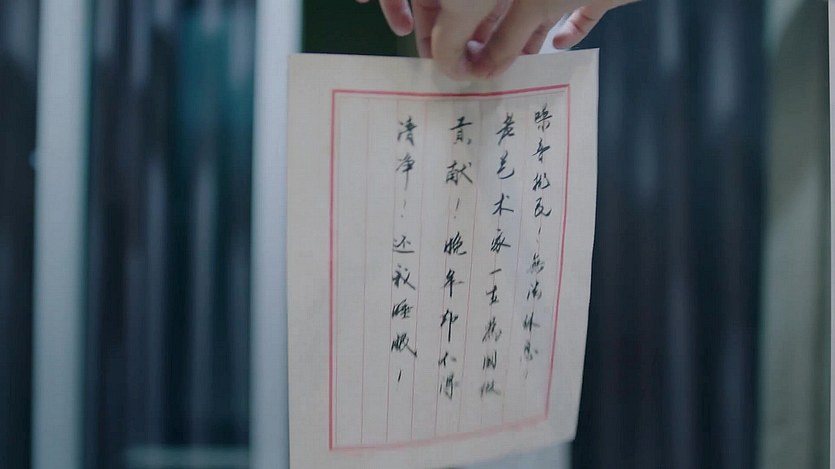 噪音扰民！无法休息！
老艺术家一直为国做
贡献！晚年却不得
清净！还我睡眠！